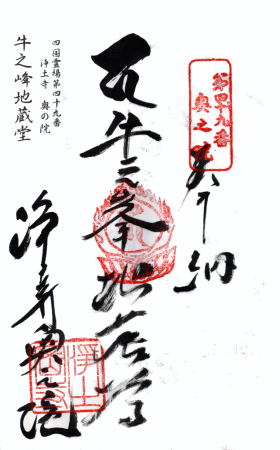 第四十九番
奥之院
奉納
牛之峯地蔵尊
浄土寺奥之院
四国霊場第四十九番
浄土寺 奥の院
牛之峰地蔵堂